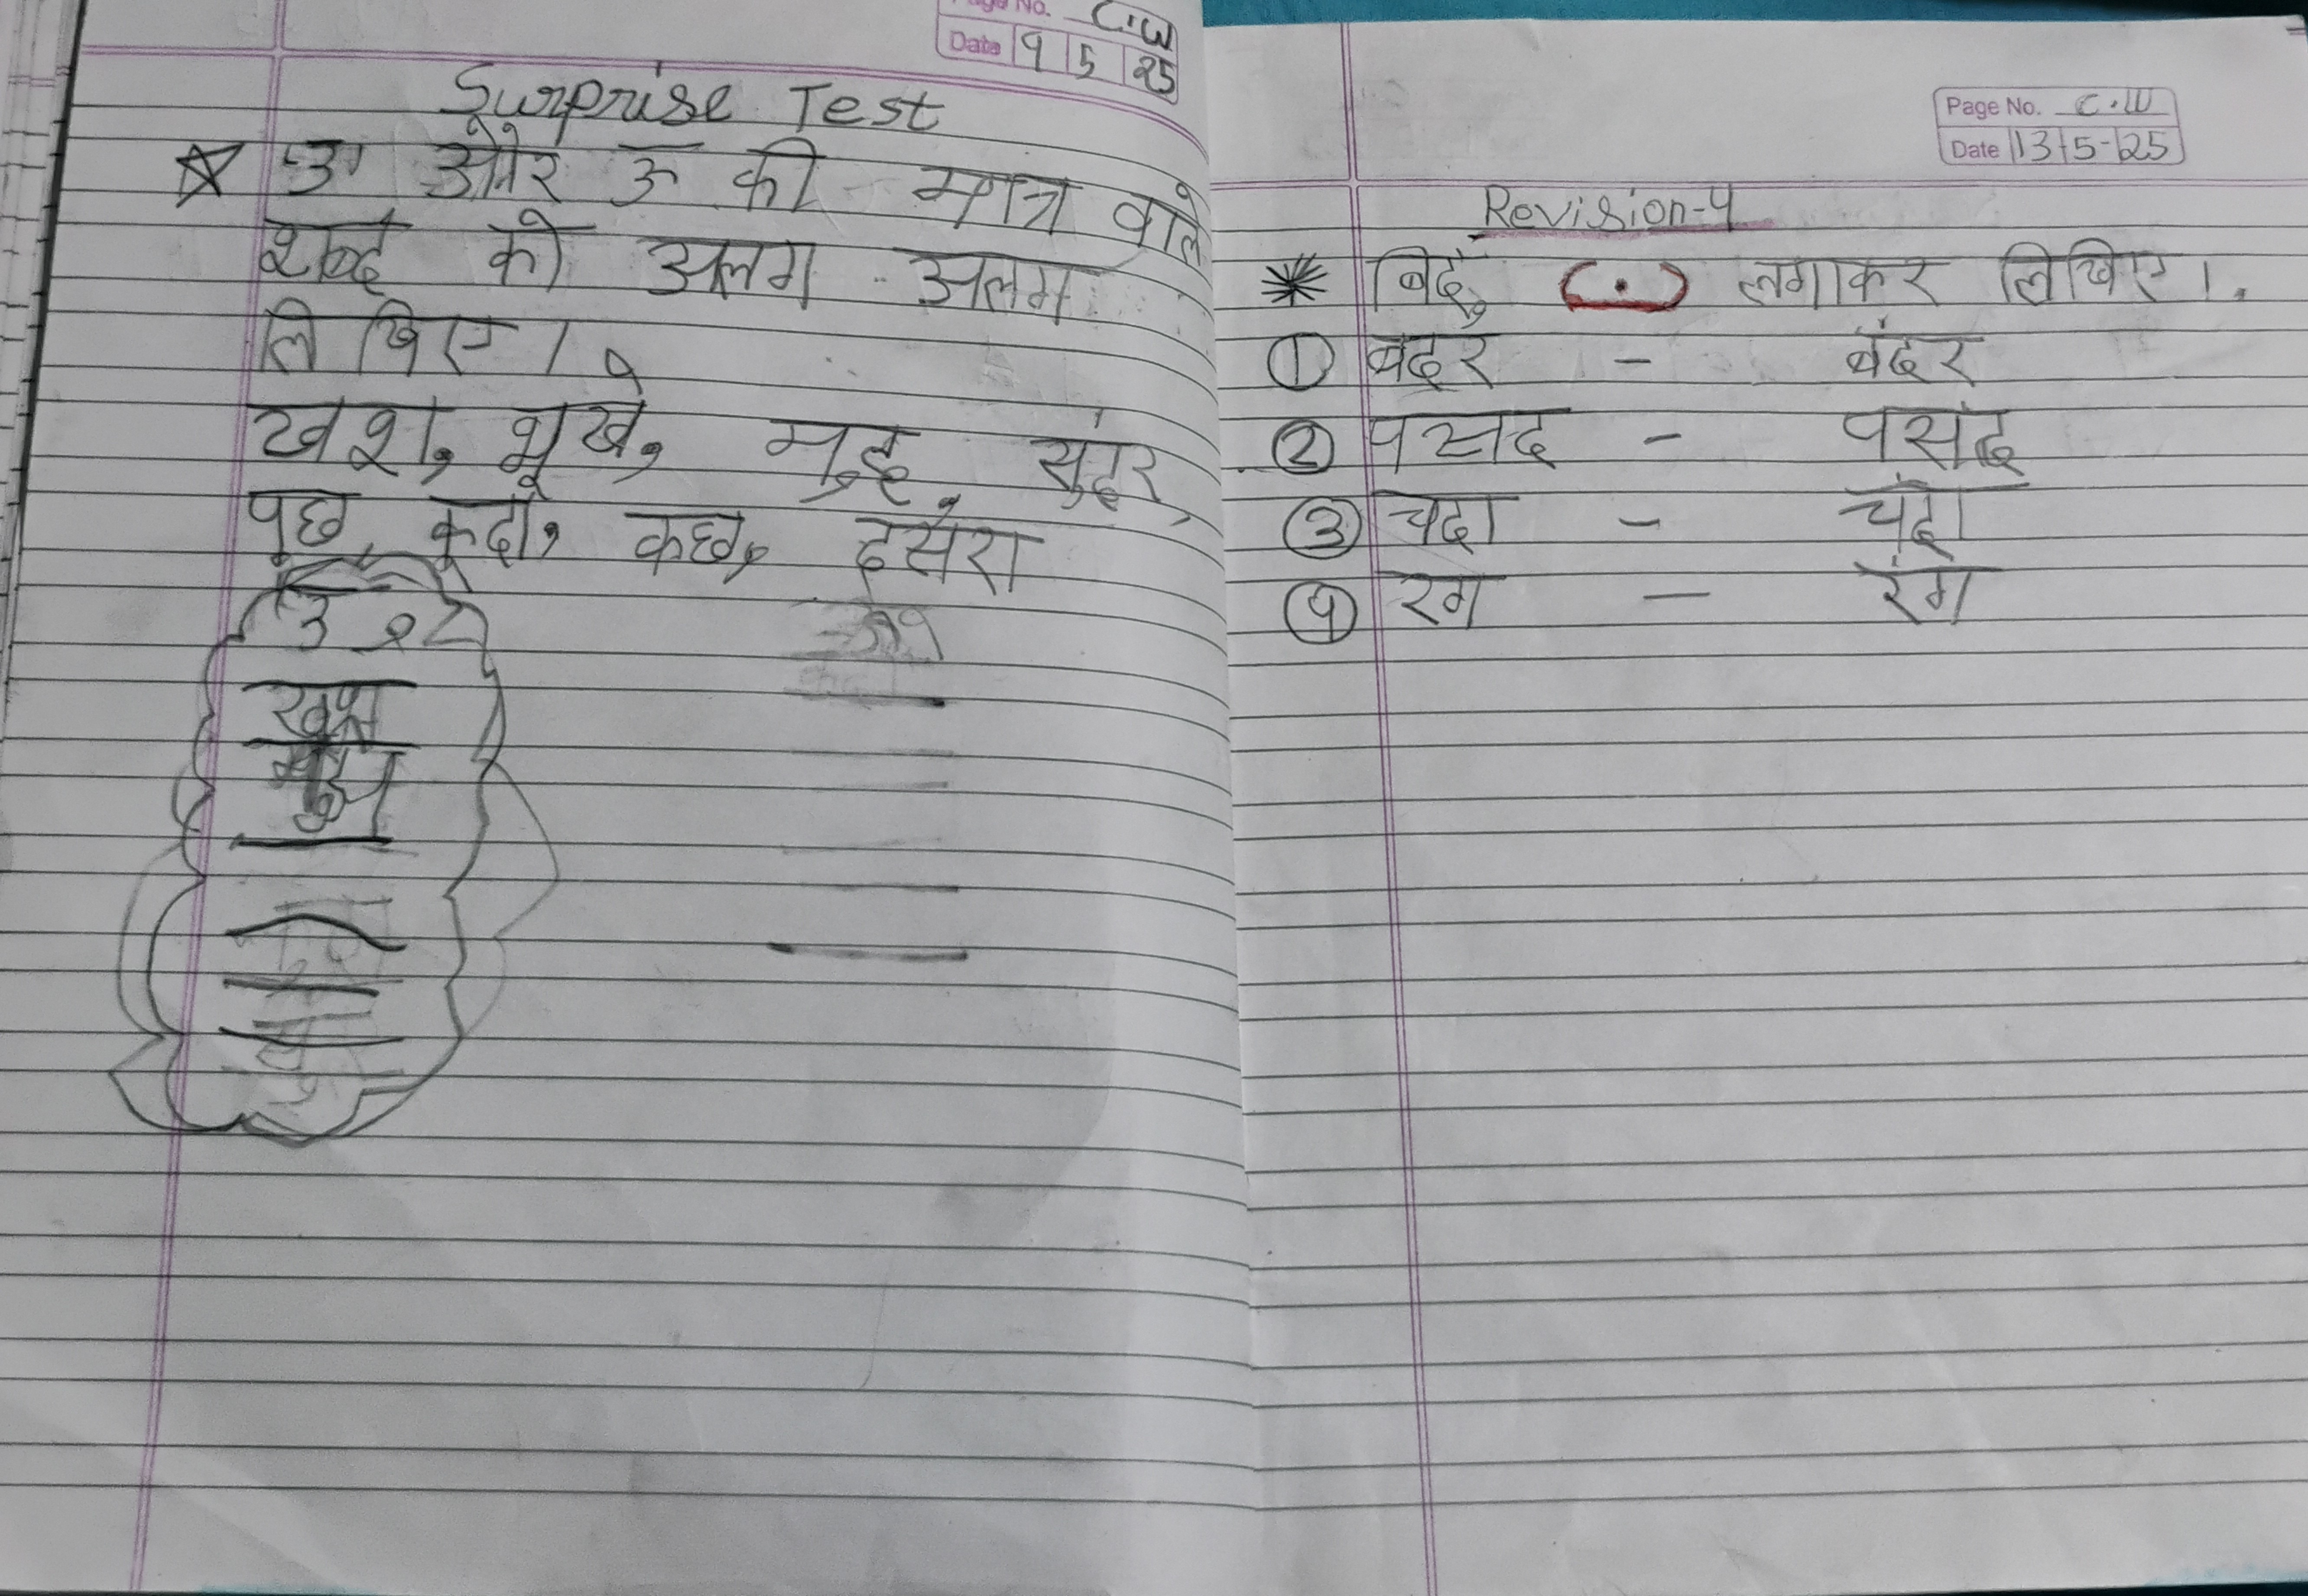 Page No. C.W
Date 9 5 25
Surprise Test
उ और ऊ की मात्र वाले
शब्द को अलग अलग
लिखिए।
खश, भूखे, मुह, सुंदर,
पुछ, कूदा, कछ, दुसरा
उ
Page No. C.W
Date 13-5-25
Revision-4
बिंदु (.) लगाकर लिखिए।.
① बदर - बंदर
② पसद - पसंद
③ चदा - चंदा
④ रग - रंग